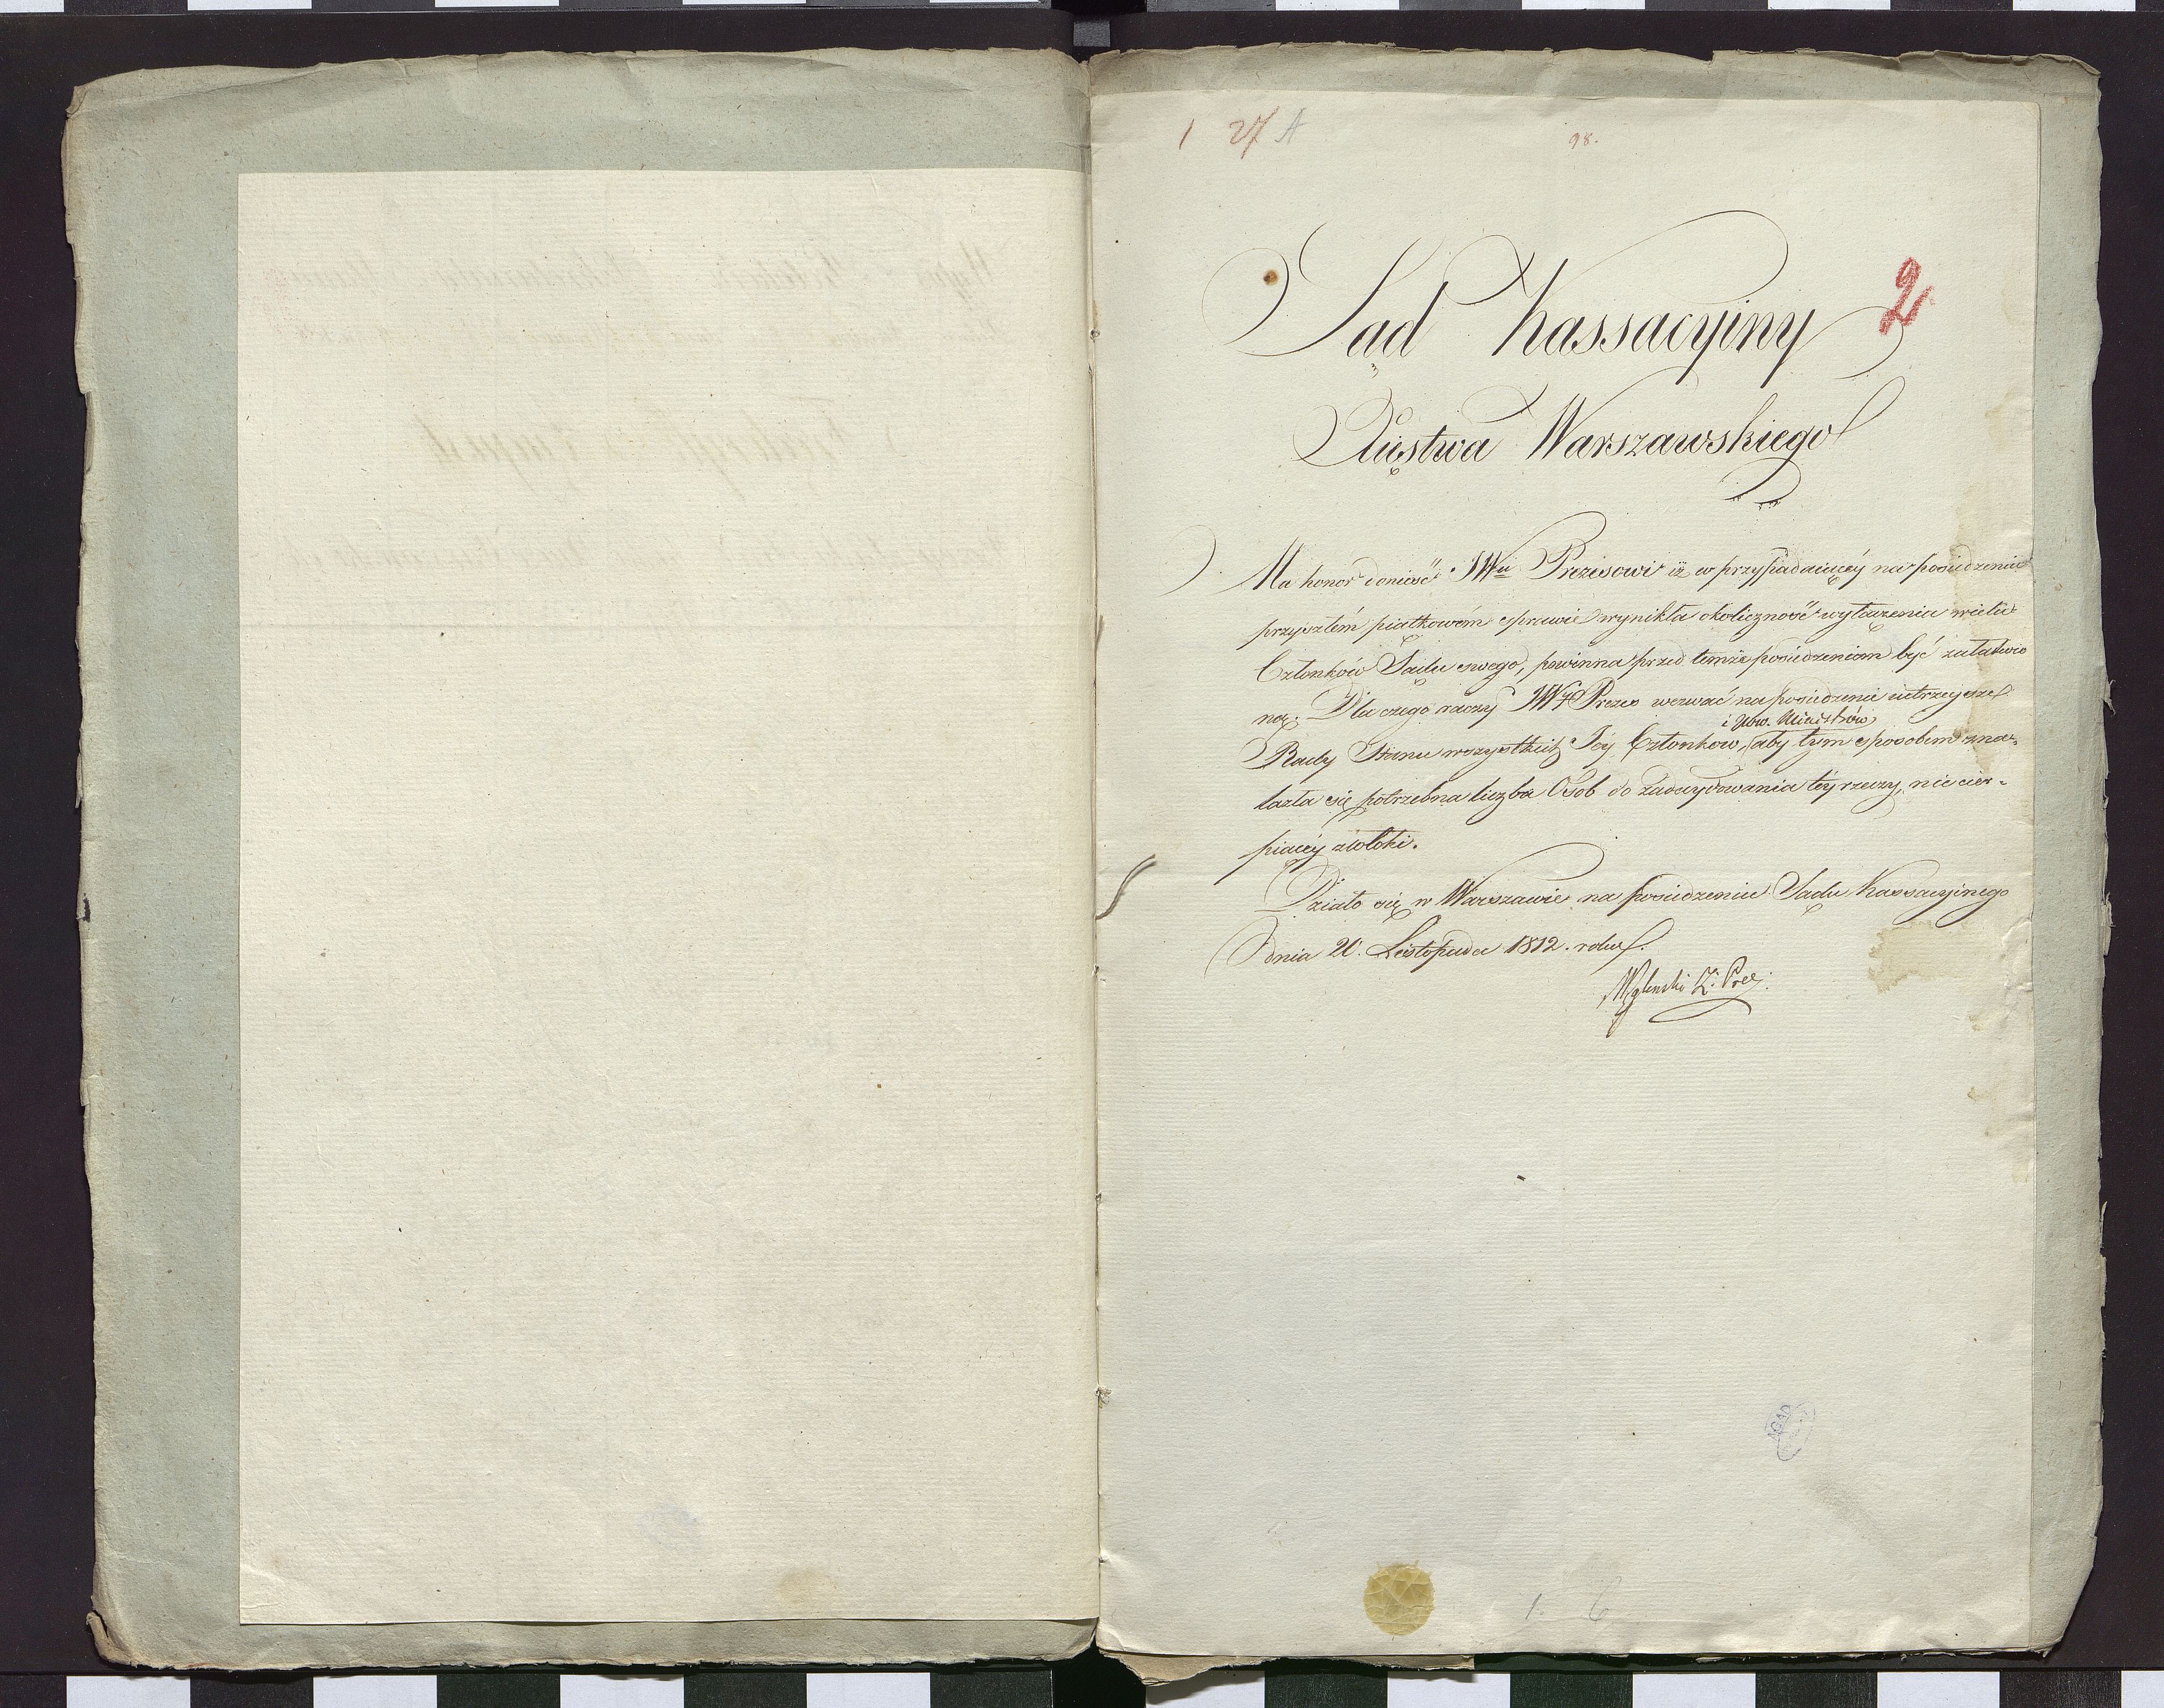 1 27 A
98.
2
Sąd Kassacyiny
Xięstwa Warszawskiego
Ma honor donieść JWu Prezesowi iż w przypadaiącéy na posiedzeniu
przyszłém piątkowém sprawie wynikła okoliczność wyłączenia wielu
Członków Sądu swego, powinna przed temże posiedzeniem być załatwio
ną. Dla czego raczy JWy Prezes wezwać na posiedzenie iutrzeysze
i JWw. Ministrów
Rady Stanu wszystkich Jéy Członków, aby tym sposobem zna-
lazła się potrzebna liczba Osob do zadecydowania téy rzeczy, nie cier-
piącéy zwłoki.
Działo się w Warszawie na posiedzeniu Sądu Kassacyinego
dnia 20. Listopada 1812. roku.
Węglenski Z. Prez:
AGAD
1. 6